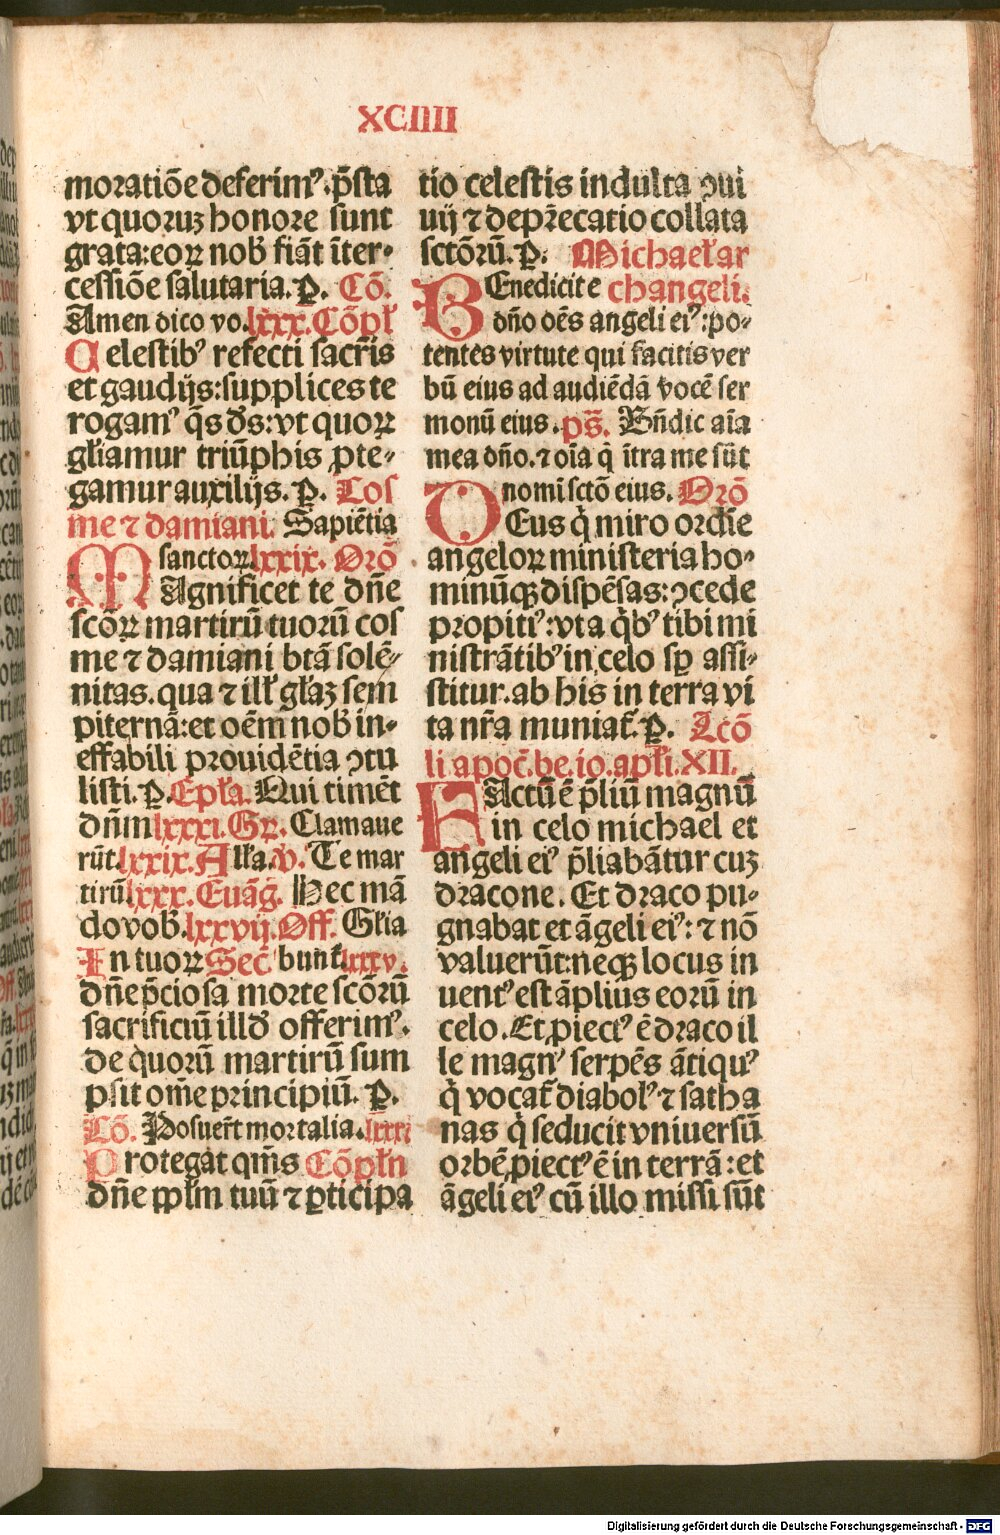 XCIIII
moratiōe deferimꝰ. p̄sta
vt quoruꝫ honore sunt
grata: eoꝝ nob̄ fiāt īter⸗
cessiōe salutaria. P. Cō.
Amen dico vo. lxxx. Cōpl̄
Celestibꝰ refecti sacr̄is
et gaudijs: supplices te
rogamꝰ q̄s d̄s: vt quoꝝ
gl̄iamur triūphis ꝓte⸗
gamur auxilijs. P. Cos
me ⁊ damiani. Sapiētia
sanctoꝝ lxxix. Orō
MAgnificet te dn̄e
scōꝝ martirū tuorū cos
me ⁊ damiani btā solē⸗
nitas. qua ⁊ ill̄ gl̄aꝫ sem
piternā: et oēm nob̄ in⸗
effabili prouidētia ꝯtu
listi. P. Epl̄a. Qui timēt
dn̄m lxxxi. Gꝝ. Clamaue
rūt. lxxix. All̄a. V. Te mar
tirū lxxx. Euāḡ. Hec mā
do vob̄. lxxvij. Off. Gl̄ia
In tuoꝝ Sec̄ bunt̄ lxxxv.
dn̄e p̄ciosa morte scōrū
sacrificiū illd̄ offerimꝰ.
de quorū martirū sum
psit om̄e principiū. P.
Cō. Posuer̄t mortalia. lxxxi
Protegat qm̄s Cōpl̄n
dn̄e ppl̄m tuū ⁊ ꝑticipa
tio celestis indulta ꝯui
uij ⁊ depr̄ecatio collata
sctōrū. P. Michael̄ ar
BEnedicite changeli.
dn̄o oēs angeli eiꝰ: po⸗
tentes virtute qui facitis ver
bū eius ad audiēdā vocē ser
monū eius. ps̄. Bn̄dic aīa
mea dn̄o. ⁊ oīa q̄ ītra me sūt
nomi sctō eius. Orō
DEus q̄ miro ordīe
angeloꝝ ministeria ho⸗
minūqꝫ dispēsas: ꝯcede
propitiꝰ: vt a q̄bꝰ tibi mi
nistrātibꝰ in celo sꝑ assi⸗
stitur. ab his in terra vi
ta nr̄a muniat̄. P. Lcō
li. apoc̄. be. io. apl̄i. XII.
FActū ē p̄liū magnū
in celo michael et
angeli eiꝰ p̄liabātur cuꝫ
dracone. Et draco pu⸗
gnabat et āgeli eiꝰ: ⁊ nō
valuerūt: neqꝫ locus in
uentꝰ est āplius eorū in
celo. Et ꝓiectꝰ ē draco il
le magnꝰ serpēs ātiquꝰ
q̄ vocat̄ diabolꝰ ⁊ satha
nas q̄ seducit vniuersū
orbē, ꝓiectꝰ ē in terrā: et
āgeli eiꝰ cū illo missi sūt
Digitalisierung gefördert durch die Deutsche Forschungsgemeinschaft - DFG